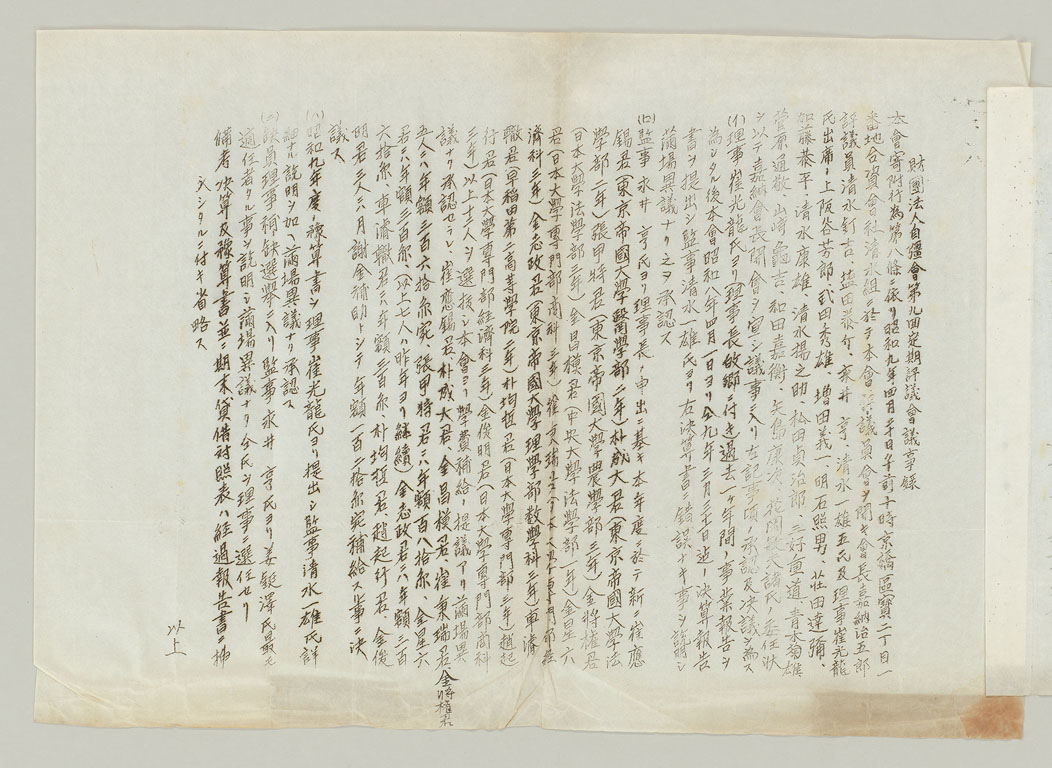 財團法人自彊會第九回定期評議會議事錄
本會寄附行為第八條ニ依リ昭和九年四月二十日午前十時京橋區寶二丁目一
番地合資會社清水組ニ於テ本會評議員會ヲ開キ會長嘉納治五郎
評議員清水釘吉、塩田泰介、永井 亨、清水一雄五氏及理事崔光龍
氏出席シ上阪谷芳郎、武田秀雄、增田義一、明石照男、莊田達彌、
加藤恭平、清水康雄、清水揚之助、松田貞治郎、三好重道、青木菊雄
菅原通敬、山崎龜吉、和田嘉衡、矢島 諸氏ノ委任狀
ヲ以テ嘉納會長開會ヲ宣シ議事ニ入リ左記事項ノ承認及決議ヲ為ス
(イ)理事崔光龍氏ヨリ(理事長故鄕ニ付キ)過去一ヶ年間ノ事業報告ヲ
為シタル後本會昭和八年四月一日ヨリ仝九年三月三十一日迄ノ決算報告
書ヲ提出シ監事清水一雄氏ヨリ右決算書ニ錯誤ナキ事ヲ証明シ
滿場異議ナリ之ヲ承認ス
(ロ)監事永井 亨氏ヨリ理事長ノ申出ニ基キ本年度ニ於テ新ニ崔應
錫君(東京帝國大學醫學部二年)朴成大君(東京帝國大學法
學部二年)張甲特君(東京帝國大學農學部三年)金將植君
(日本大學法學部三年)金昌模君(中央大學法學部一年)金星六
君(日本大學專門部商科三年)崔 瑞君( 專門部經
濟科三年)金志政君(東京帝國大學理學部數學科三年)車濬
轍君(早稻田第二高等學院二年)朴均恒君(日本大學專門部二年)趙起
行君(日本大學專門部經濟科三年)金俊明君(日本大學專門部商科
三年)以上十二人ヲ選拔シ本會ヨリ學費補給ノ提議アリ滿場異
議ナリ承認セラレ、崔應錫君、朴成大君、金昌模君、崔 瑞君、金將植君
五人ニハ年額三百六拾糸宛、張甲特君ニハ年額百八拾糸、金星六
君ニハ年額三百糸、(以上七人ハ昨年ヨリ繼續)金志政君ニハ年額三百
六拾糸、車濬轍君ニハ年額三百糸、朴均恒君、趙起行君、金俊
明君三人ニハ月謝金補助トシテ年額一百二拾糸宛補給スル事ニ決
議ス
(ハ)昭和九年度ノ豫算書ヲ理事崔光龍氏ヨリ提出シ監事清水一雄氏詳
細ナル說明ヲ加ヘ滿場異議ナリ承認ス
(ニ)缺員理事補缺選擧ニ入リ監事永井 亨氏ヨリ姜鋌澤氏最モ
適任者タル事ヲ說明シ滿場異議ナリ仝氏ヲ理事ニ選任セリ
備考 決算及豫算書並ニ期末貸借對照表ハ經過報告書ニ揷
入シタルニ付キ省略ス
以上